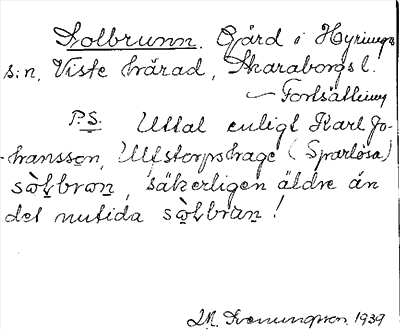 Solbrunn. Gård i Hyringa
s:n, Viste härad, Skaraborgs l.
— Fortsättning
P.S. Uttal enligt Karl Jo-
hansson, Ulfstorpshage (Sparlösa)
sòlbron, säkerligen äldre än
det nutida sòlbran!
1939